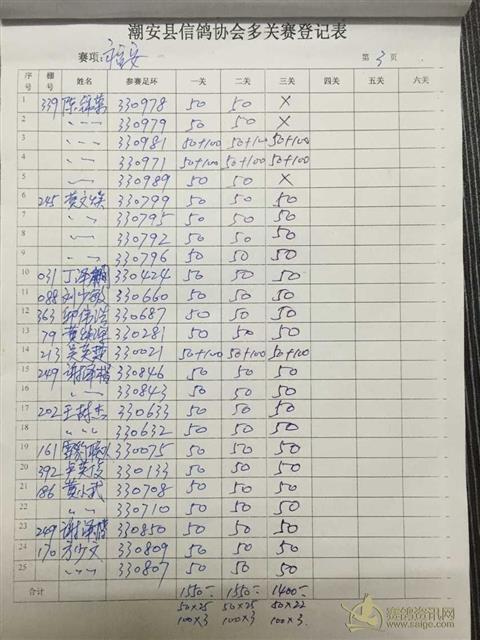 潮安县信鸽协会多关赛登记表
赛项: 第 3 页
序号 棚号 姓名 参赛足环 一关 二关 三关 四关 五关 六关
1 339 330978 50 50 ×
2 〃 330979 50 50 ×
3 〃 330981 50+100 50+100 50+100
4 〃 330971 50+100 50+100 50+100
5 〃 330989 50 50 ×
6 245 黄文 330799 50 50 50
7 〃 330795 50 50 50
8 〃 330792 50 50 50
9 〃 330796 50 50 50
10 031 丁泽 330424 50 50 50
11 088 330660 50 50 50
12 363 伟 330687 50 50 50
13 79 黄 330281 50 50 50
14 213 吴 330021 50+100 50+100 50+100
15 249 谢泽 330846 50 50 50
16 〃 330843 50 50 50
17 202 王树杰 330633 50 50 50
18 〃 330632 50 50 50
19 161 330075 50 50 50
20 392 330133 50 50 50
21 186 黄小武 330708 50 50 50
22 〃 330710 50 50 50
23 249 谢泽 330850 50 50 50
24 170 方少文 330809 50 50 50
25 〃 330807 50 50 50
合计 1550- 1550- 1400-
50×25 50×25 50×22
100×3 100×3 100×3
赛鸽资讯网
www.saige.com